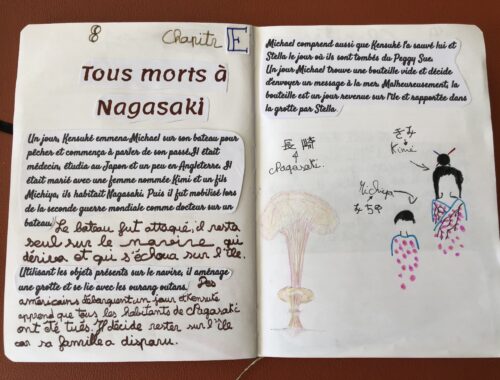 8
Chapitre E
Tous morts à
Nagasaki
Un jour, Kensuké emmena Michael sur son bateau pour
pêcher et commença à parler de son passé. Il était
médecin, étudia au Japon et un peu en Angleterre. Il
était marié avec une femme nommée Kimi et un fils
Michiya, ils habitait Nagasaki. Puis il fut mobilisé lors
de la seconde guerre mondiale comme docteur sur un
bateau. Le bateau fut attaqué, il resta
seul sur le navire qui
dériva et qui s'échoua sur l'île.
Utilisant les objets présents sur le navire, il aménage
une grotte et se lie avec les ourang outans. Des
américains débarquent un jour et Kensuké
apprend que tous les habitants de Nagasaki
ont été tués. Il décide rester sur l'île
car sa famille a disparu.
Michael comprend aussi que Kensuké l'a sauvé lui et
Stella le jour où ils sont tombés du Peggy Sue.
Un jour Michael trouve une bouteille vide et décide
d'envoyer un message à la mer. Malheureusement, la
bouteille est un jour revenue sur l'île et rapportée dans
la grotte par Stella.
長崎
Nagasaki
きみ
Kimi
Michiya
みちや